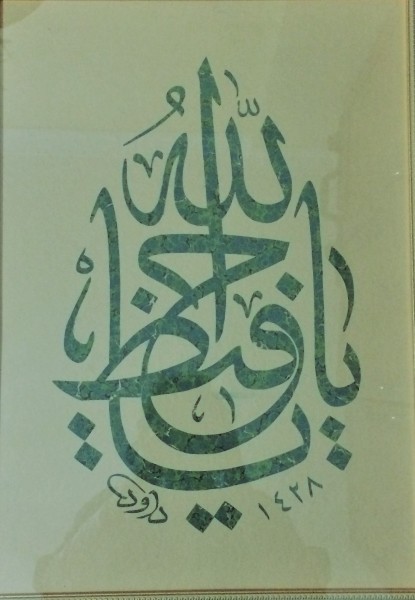 يا حافظ يا الله
داود
١٤٢٨